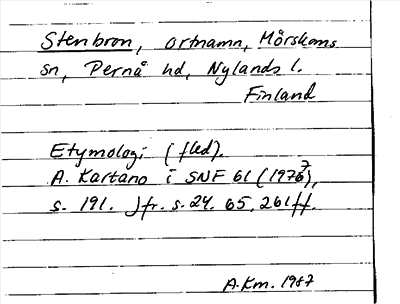 Stenbron, ortnamn, Mörskoms
sn, Pernå hd, Nylands l.
Finland
Etymologi (fled).
A. Kartano i SNF 61 (1977),
s. 191. Jfr. s. 24. 65, 261 ff.
A.Km. 1987